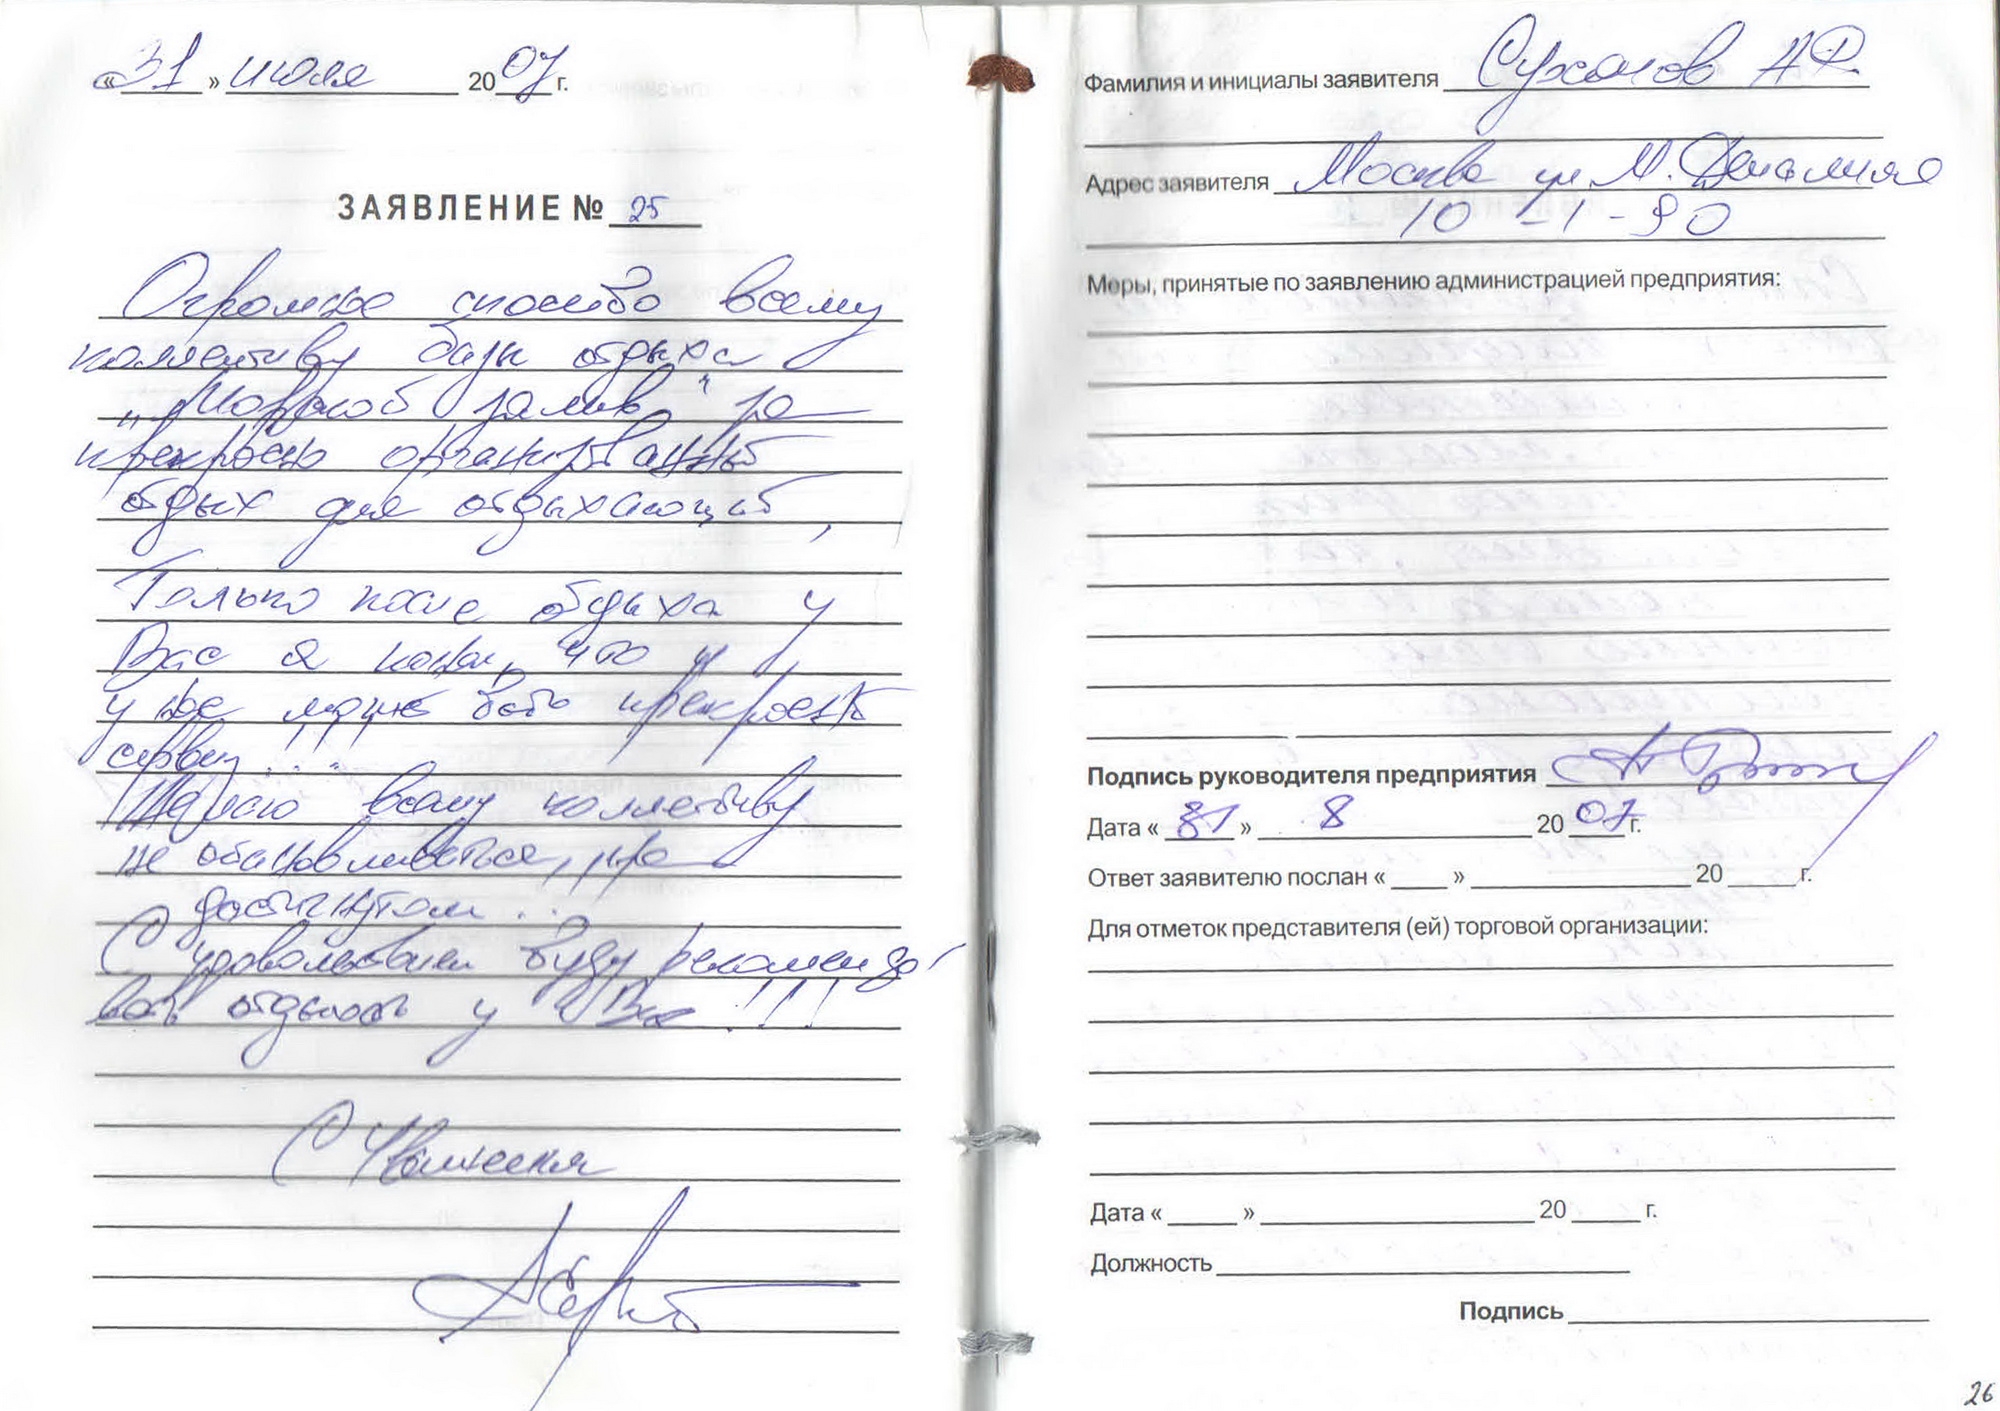 «31» июля 2007 г.
ЗАЯВЛЕНИЕ № 25
Огромное спасибо всему
коллективу базы отдыха
" залив" за
прекрасно организованный
отдых для отдыхающий,
Только после отдыха у
Вас я понял, что и
у нас может быть прекрасный
сервиз...
Желаю всему коллективу
не обановливаться, на
достигнутом...
С удовольствием буду рекомендо-
вать отдыхать у Вас!!!
С Уважением
Фамилия и инициалы заявителя Суханов А
Адрес заявителя Москва ул. М.
10-1-90
Меры, принятые по заявлению администрацией предприятия:
Подпись руководителя предприятия
Дата «31» 8 2007 г.
Ответ заявителю послан « » 20 г.
Для отметок представителя (ей) торговой организации:
Дата « » 20 г.
Должность
Подпись
26